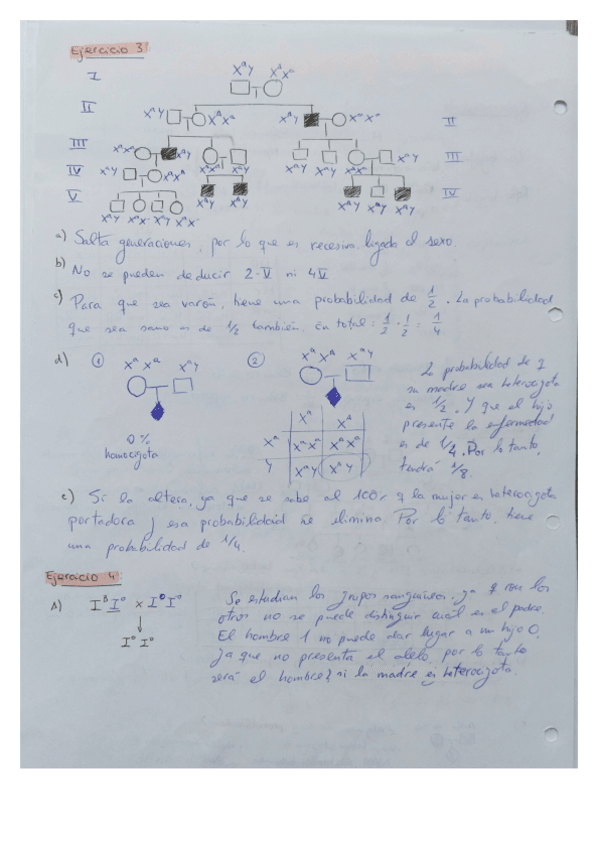 Ejercicio 3
I
XᴬY XᴬXᵃ
II
XᴬY XᴬXᵃ XᵃY XᴬXᴬ II
III
XᵃY III
IV
XᴬY XᴬXᵃ XᴬY XᴬY XᴬY
XᵃY XᵃY XᵃY XᴬY XᵃY IV
V
XᴬY XᴬX⁻ XᴬY XᴬX⁻
a) Salta generaciones, por lo que es recesivo ligado al sexo.
b) No se pueden deducir 2-V ni 4V
c) Para que sea varón, tiene una probabilidad de 1/2. La probabilidad
que sea sano es de 1/2 también. En total: 1/2 · 1/2 = 1/4
d) ① XᴬXᴬ XᴬY ② XᴬXᵃ XᴬY
0%
homocigota
Xᴬ Xᵃ
Xᴬ XᴬXᴬ XᴬXᵃ
Y XᴬY XᵃY
La probabilidad de q
su madre sea heterocigota
es 1/2. Y que el hijo
presente la enfermedad
es de 1/4. Por lo tanto,
tendrá 1/8.
e) Sí la altera, ya que se sabe al 100% q la mujer es heterocigota
portadora y esa probabilidad se elimina. Por lo tanto, tiene
una probabilidad de 1/4.
Ejercicio 4
A) IᴮI⁰ x I⁰I⁰
I⁰I⁰
Se estudian los grupos sanguíneos, ya q con los
otros no se puede distinguir cuál es el padre.
El hombre 1 no puede dar lugar a un hijo 0,
ya que no presenta el alelo, por lo tanto
será el hombre 2 si la madre es heterocigota.